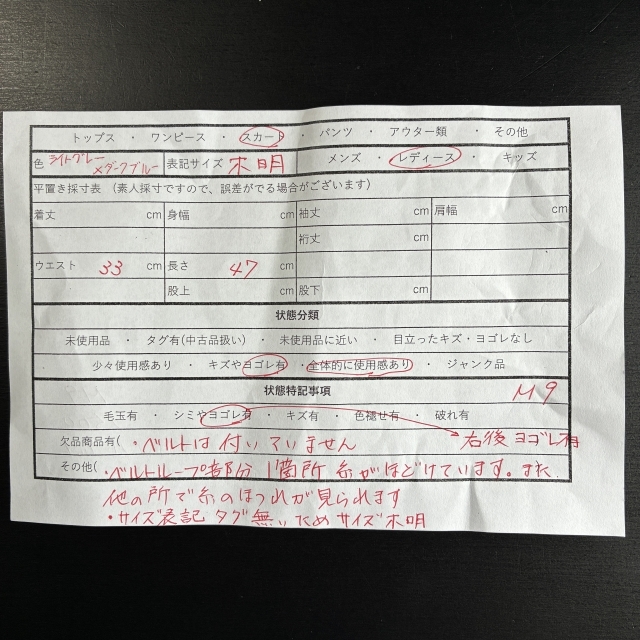 トップス ・ ワンピース ・ スカート ・ パンツ ・ アウター類 ・ その他
色 ライトグレー×ダークブルー 表記サイズ 不明 メンズ ・ レディース ・ キッズ
平置き採寸表 (素人採寸ですので、誤差がでる場合がございます)
着丈 cm 身幅 cm 袖丈 cm 肩幅 cm
裄丈 cm
ウエスト 33 cm 長さ 47 cm
股上 cm 股下 cm
状態分類
未使用品 ・ タグ有(中古品扱い) ・ 未使用品に近い ・ 目立ったキズ・ヨゴレなし
少々使用感あり ・ キズやヨゴレ有 ・ 全体的に使用感あり ・ ジャンク品
状態特記事項 M9
毛玉有 ・ シミやヨゴレ有 ・ キズ有 ・ 色褪せ有 ・ 破れ有
欠品商品有( ・ベルトは付いていません 右後 ヨゴレ有
その他( ・ベルトループ部分 1箇所 糸がほどけています。また
他の所で糸のほつれが見られます
・サイズ表記 タグ無いためサイズ不明